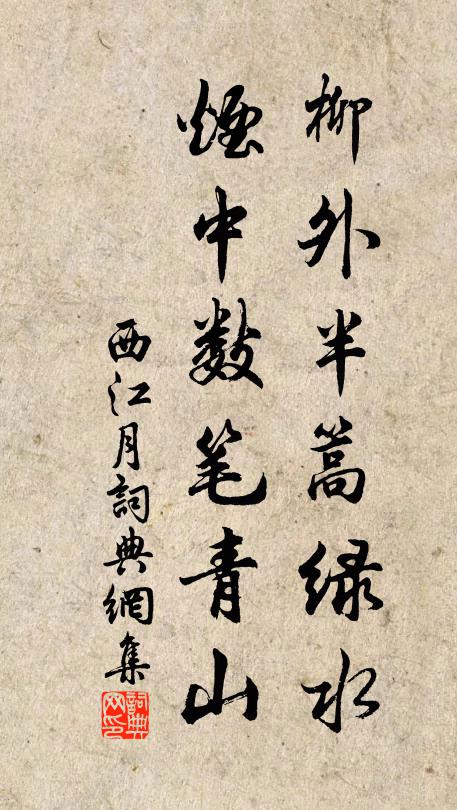 柳外半篙绿水
煙中数笔青山
西江月詞典網集
詞典
网印